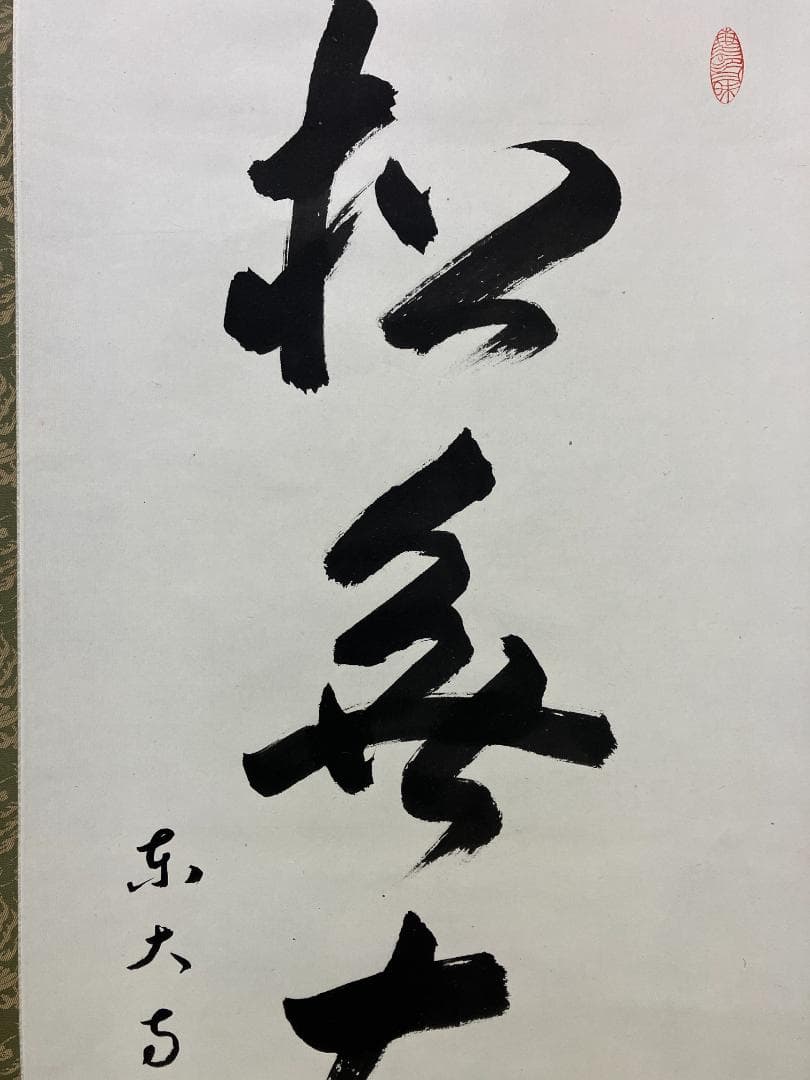 松無
東大寺